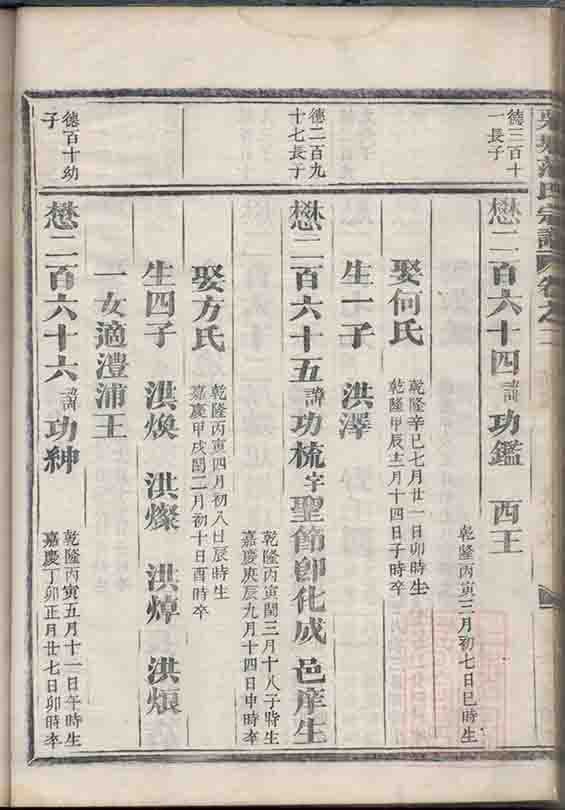 范氏宗譜 卷之三
德三百十
一長子
懋二百六十四 諱 功鑑 西王
乾隆丙寅三月初七日巳時生
娶何氏
乾隆辛巳七月廿一日卯時生
乾隆甲辰十二月十四日子時卒
生一子 洪澤
德二百九
十七長子
懋二百六十五 諱 功梳 字 聖節即化成 邑庠生
乾隆丙寅閏三月十八子時生
嘉慶庚辰九月十四日申時卒
娶方氏
乾隆丙寅四月初八日辰時生
嘉慶甲戌閏二月初十日酉時卒
生四子 洪煥 洪燦 洪焯 洪烺
一女適澧浦王
德百十幼
子
懋二百六十六 諱 功紳
乾隆丙寅五月十一日午時生
嘉慶丁卯正月廿七日卯時卒